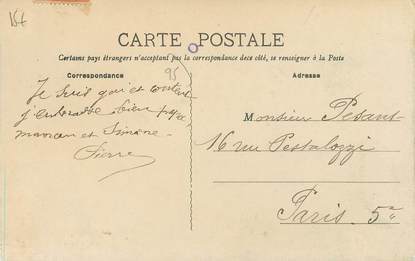 15f
CARTE POSTALE
Certains pays étrangers n'acceptant pas la correspondance de ce côté, se renseigner à la Poste
Correspondance
95
Je suis gai et content
j'embrasse bien papa
maman et Simone
Pierre
Adresse
Monsieur Pesant
16 rue Pestalozzi
Paris. 5e